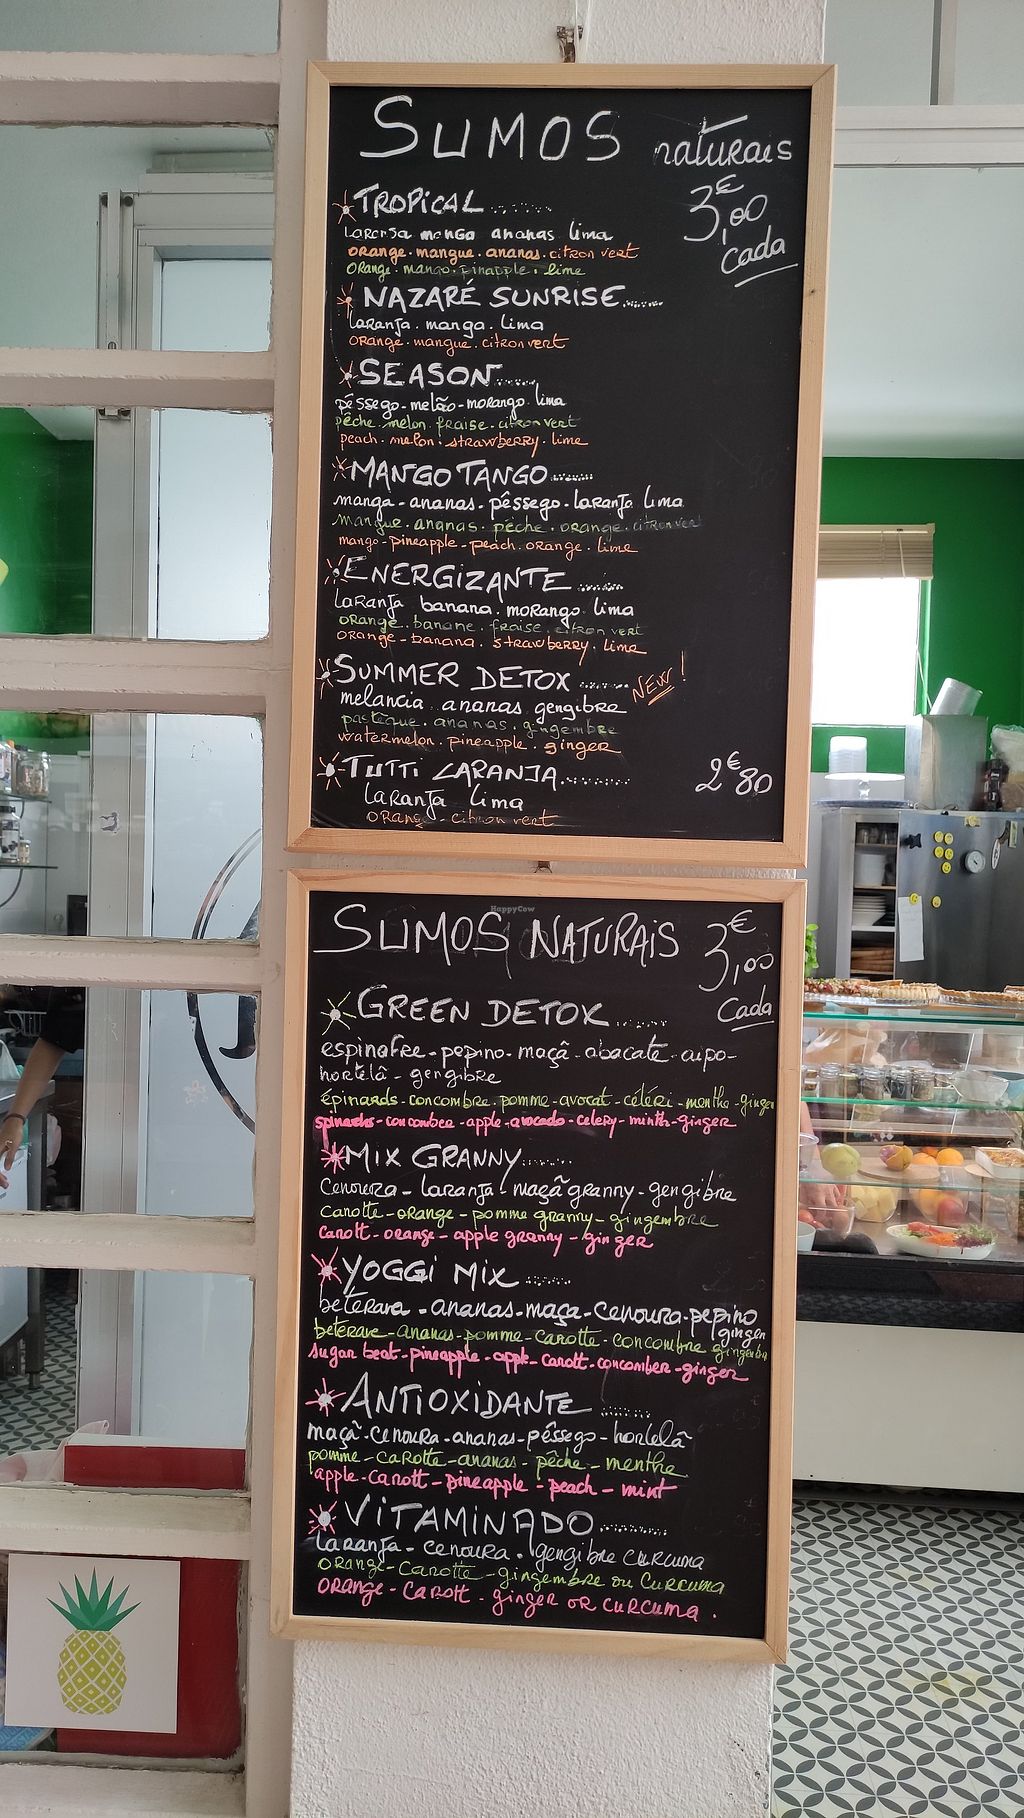 SUMOS naturais
3,00€
cada
TROPICAL
laranja manga ananas lima
orange. mangue. ananas. citron vert
orange. mango. pinapple. lime
NAZARÉ SUNRISE
laranja. manga. lima
orange. mangue. citron vert
SEASON
pêssego - melão - morango. lima
pêche. melon. fraise. citron vert
peach. melon. strawberry. lime
MANGO TANGO
manga - ananas - pêssego - laranja lima
mangue. ananas. pêche. orange. citron vert
mango - pineapple - peach. orange. lime
ENERGIZANTE
laranja banana. morango lima
orange. banane. fraise. citron vert
orange - banana. strawberry. lime
SUMMER DETOX NEW!
melancia ananas gengibre
pastèque. ananas. gingembre
watermelon. pineapple. ginger
TUTTI LARANJA 2€80
laranja lima
orange - citron vert
SUMOS NATURAIS 3,00€
cada
GREEN DETOX
espinafre - pepino - maçã - abacate - aipo -
hortelã - gengibre
épinards - concombre. pomme - avocat - céléri - menthe - ginger
spinards - concombee - apple - avocado - celery - minth - ginger
MIX GRANNY
cenoura - laranja - maçã granny - gengibre
carotte - orange - pomme granny - gingembre
carott - orange - apple granny - ginger
YOGGI MIX
beterava - ananas - maça - cenoura - pepino
ginger
beterave - ananas - pomme - carotte - concombre gingembre
sugar beat - pineapple - apple - carott - concomber - ginger
ANTIOXIDANTE
maçã - cenoura - ananas - pêssego - hortelã
pomme - carotte - ananas - pêche - menthe
apple - carott - pineapple - peach - mint
VITAMINADO
laranja - cenoura. gengibre curcuma
orange - carotte - gingembre ou curcuma
orange - carott - ginger or curcuma.
HappyCow